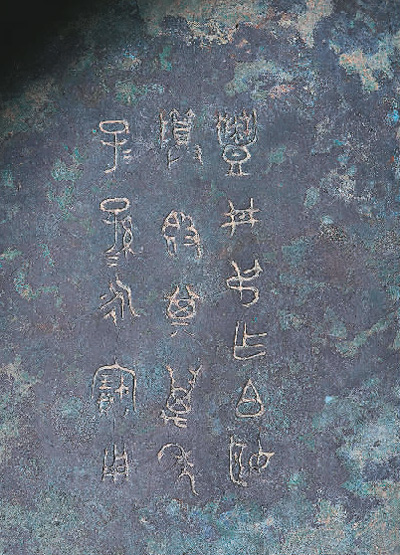 豐井弔乍白姬
尊簋其萬年
子孫=永寶用